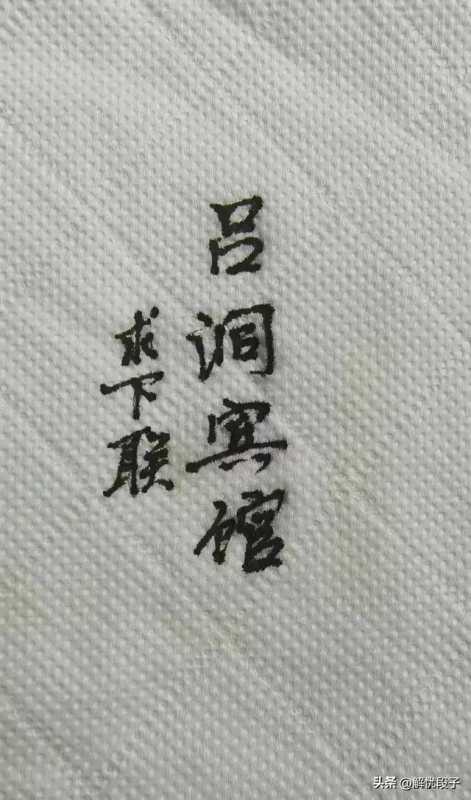 吕洞宾馆
求下联
头条 @解忧段子